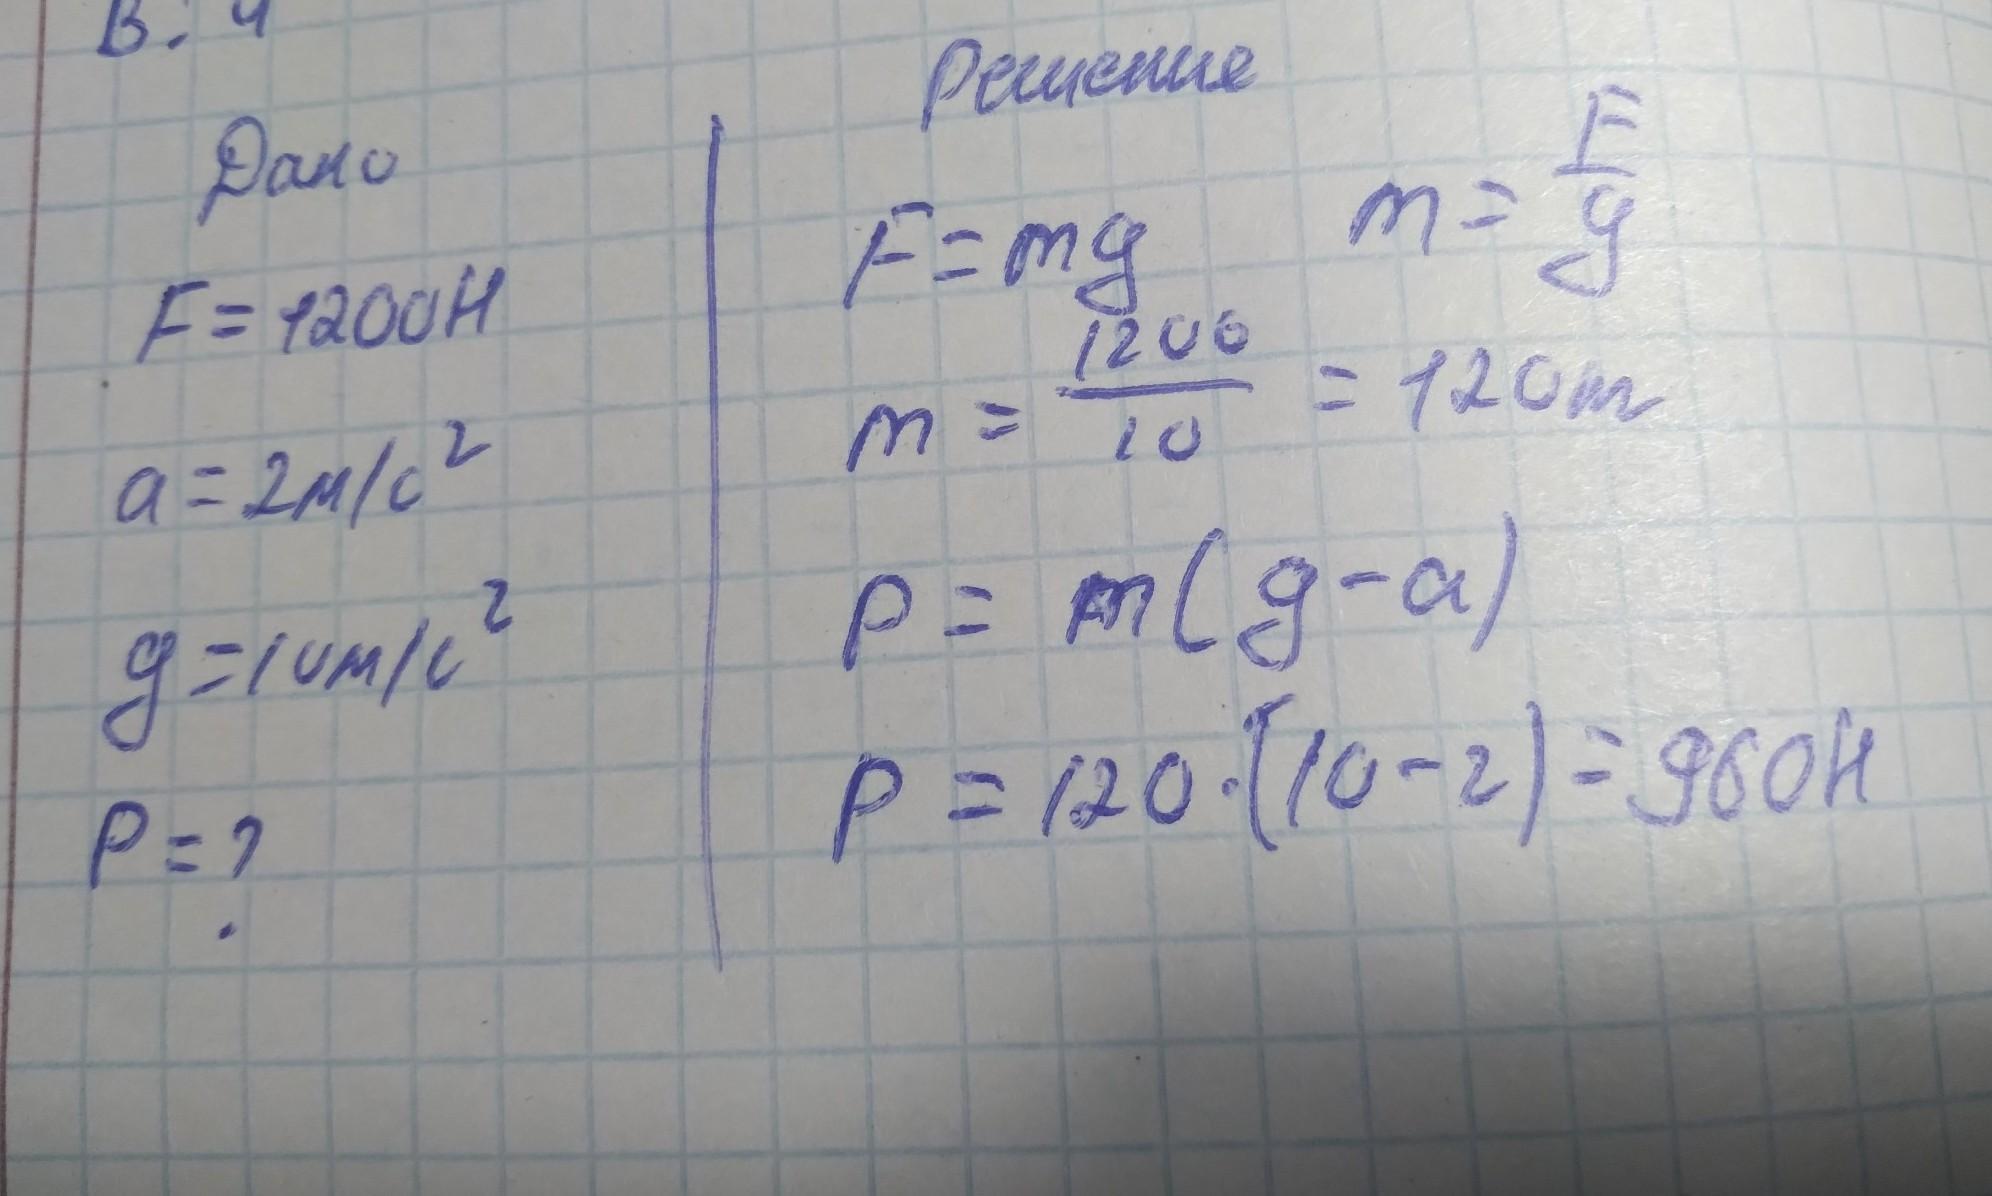 В: 4
Дано
F = 1200Н
a = 2м/с²
g = 10м/с²
P = ?
Решение
F = mg m = F/g
m = 1200/10 = 120m
P = m(g - a)
P = 120 · (10 - 2) = 960Н